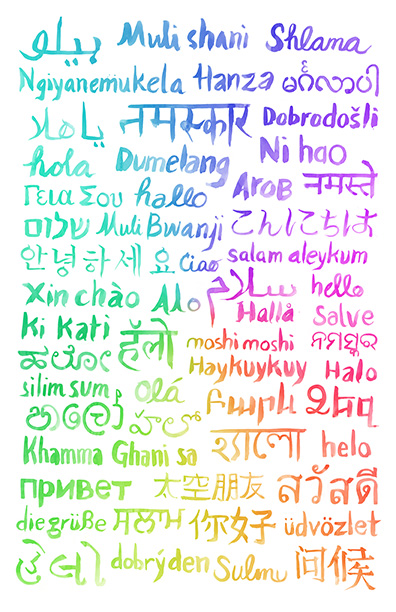 بيلو Muli shani Shlama
Ngiyanemukela Hanza မင်္ဂလာပါ
ياهلا नमस्कार Dobrodošli
hola Dumelang Ni hao
Γεια Σου hallo Arob नमस्ते
שלום Muli Bwanji こんにちは
안녕하세요 Ciao salam aleykum
Xin chào Alo سلام hello
Hallå Salve
Ki Kati हॅलो moshi moshi ନମସ୍କାର
ಹಲೋ Haykuykuy Halo
silim sum Olá Բարև Ձեզ
හලෝ హలో
Khamma Ghani sa হ্যালো helo
привет 太空朋友 สวัสดี
die grüße ਸਲਾਮ 你好 üdvözlet
હેલો dobrý den Sulmu 问候